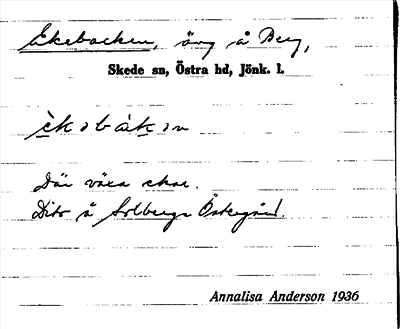 Ekebacken, äng å Berg,
Skede sn, Östra hd, Jönk. l.
èkɔbàkɔn
Där växa ekar.
Dito å Solberga Östergård.
Annalisa Anderson 1936